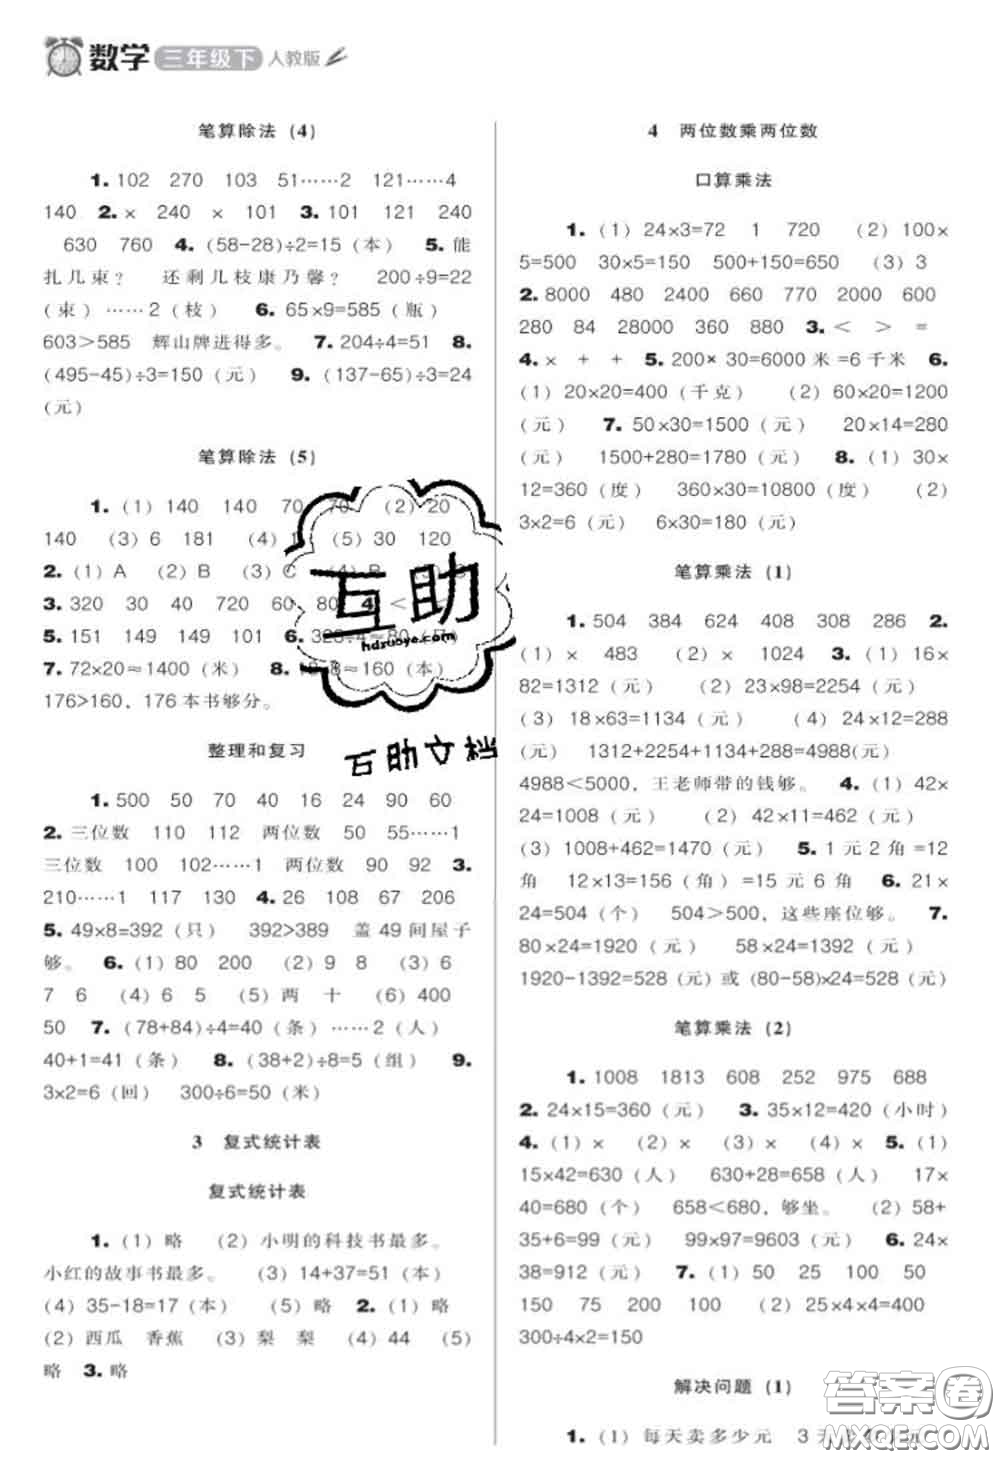 数学 三年级下 人教版
笔算除法 (4)
1. 102 270 103 51……2 121……4
140 2. × 240 × 101 3. 101 121 240
630 760 4. (58-28)÷2=15 (本) 5. 能
扎几束? 还剩几枝康乃馨? 200÷9=22
(束) ……2 (枝) 6. 65×9=585 (瓶)
603>585 辉山牌进得多。 7. 204÷4=51 8.
(495-45)÷3=150 (元) 9. (137-65)÷3=24
(元)
笔算除法 (5)
1. (1) 140 140 70 70 (2) 20
140 (3) 6 181 (4) (5) 30 120
2. (1) A (2) B (3) C
3. 320 30 40 720 60 80 4. <
5. 151 149 149 101 6. 328÷4≈80
7. 72×20≈1400 (米) 8. ≈160 (本)
176>160, 176 本书够分。
整理和复习
1. 500 50 70 40 16 24 90 60
2. 三位数 110 112 两位数 50 55……1
三位数 100 102……1 两位数 90 92 3.
210……1 117 130 4. 26 108 67 206
5. 49×8=392 (只) 392>389 盖 49 间屋子
够。 6. (1) 80 200 (2) 9 8 (3) 6
7 6 (4) 6 5 (5) 两 十 (6) 400
50 7. (78+84)÷4=40 (条) ……2 (人)
40+1=41 (条) 8. (38+2)÷8=5 (组) 9.
3×2=6 (回) 300÷6=50 (米)
3 复式统计表
复式统计表
1. (1) 略 (2) 小明的科技书最多。
小红的故事书最多。 (3) 14+37=51 (本)
(4) 35-18=17 (本) (5) 略 2. (1) 略
(2) 西瓜 香蕉 (3) 梨 梨 (4) 44 (5)
略 3. 略
4 两位数乘两位数
口算乘法
1. (1) 24×3=72 1 720 (2) 100×
5=500 30×5=150 500+150=650 (3) 3
2. 8000 480 2400 660 770 2000 600
280 84 28000 360 880 3. < > =
4. × + + 5. 200×30=6000 米=6 千米 6.
(1) 20×20=400 (千克) (2) 60×20=1200
(元) 7. 50×30=1500 (元) 20×14=280
(元) 1500+280=1780 (元) 8. (1) 30×
12=360 (度) 360×30=10800 (度) (2)
3×2=6 (元) 6×30=180 (元)
笔算乘法 (1)
1. 504 384 624 408 308 286 2.
(1) × 483 (2) × 1024 3. (1) 16×
82=1312 (元) (2) 23×98=2254 (元)
(3) 18×63=1134 (元) (4) 24×12=288
(元) 1312+2254+1134+288=4988(元)
4988<5000, 王老师带的钱够。 4. (1) 42×
24=1008 (元) (2) 42×11=462 (元)
(3) 1008+462=1470 (元) 5. 1 元 2 角=12
角 12×13=156 (角) =15 元 6 角 6. 21×
24=504 (个) 504>500, 这些座位够。 7.
80×24=1920 (元) 58×24=1392 (元)
1920-1392=528 (元) 或 (80-58)×24=528 (元)
笔算乘法 (2)
1. 1008 1813 608 252 975 688
2. 24×15=360 (元) 3. 35×12=420 (小时)
4. (1) × (2) × (3) × (4) × 5. (1)
15×42=630 (人) 630+28=658 (人) 17×
40=680 (个) 658<680, 够坐。 (2) 58+
35+6=99 (元) 99×97=9603 (元) 6. 24×
38=912 (元) 7. (1) 50 25 100 50
150 75 200 100 (2) 25×4×4=400
300÷4×2=150
解决问题 (1)
1. (1) 每天卖多少元 3 天
互助
hdzuoye.com
互助文档
答案圈
MXQE.COM